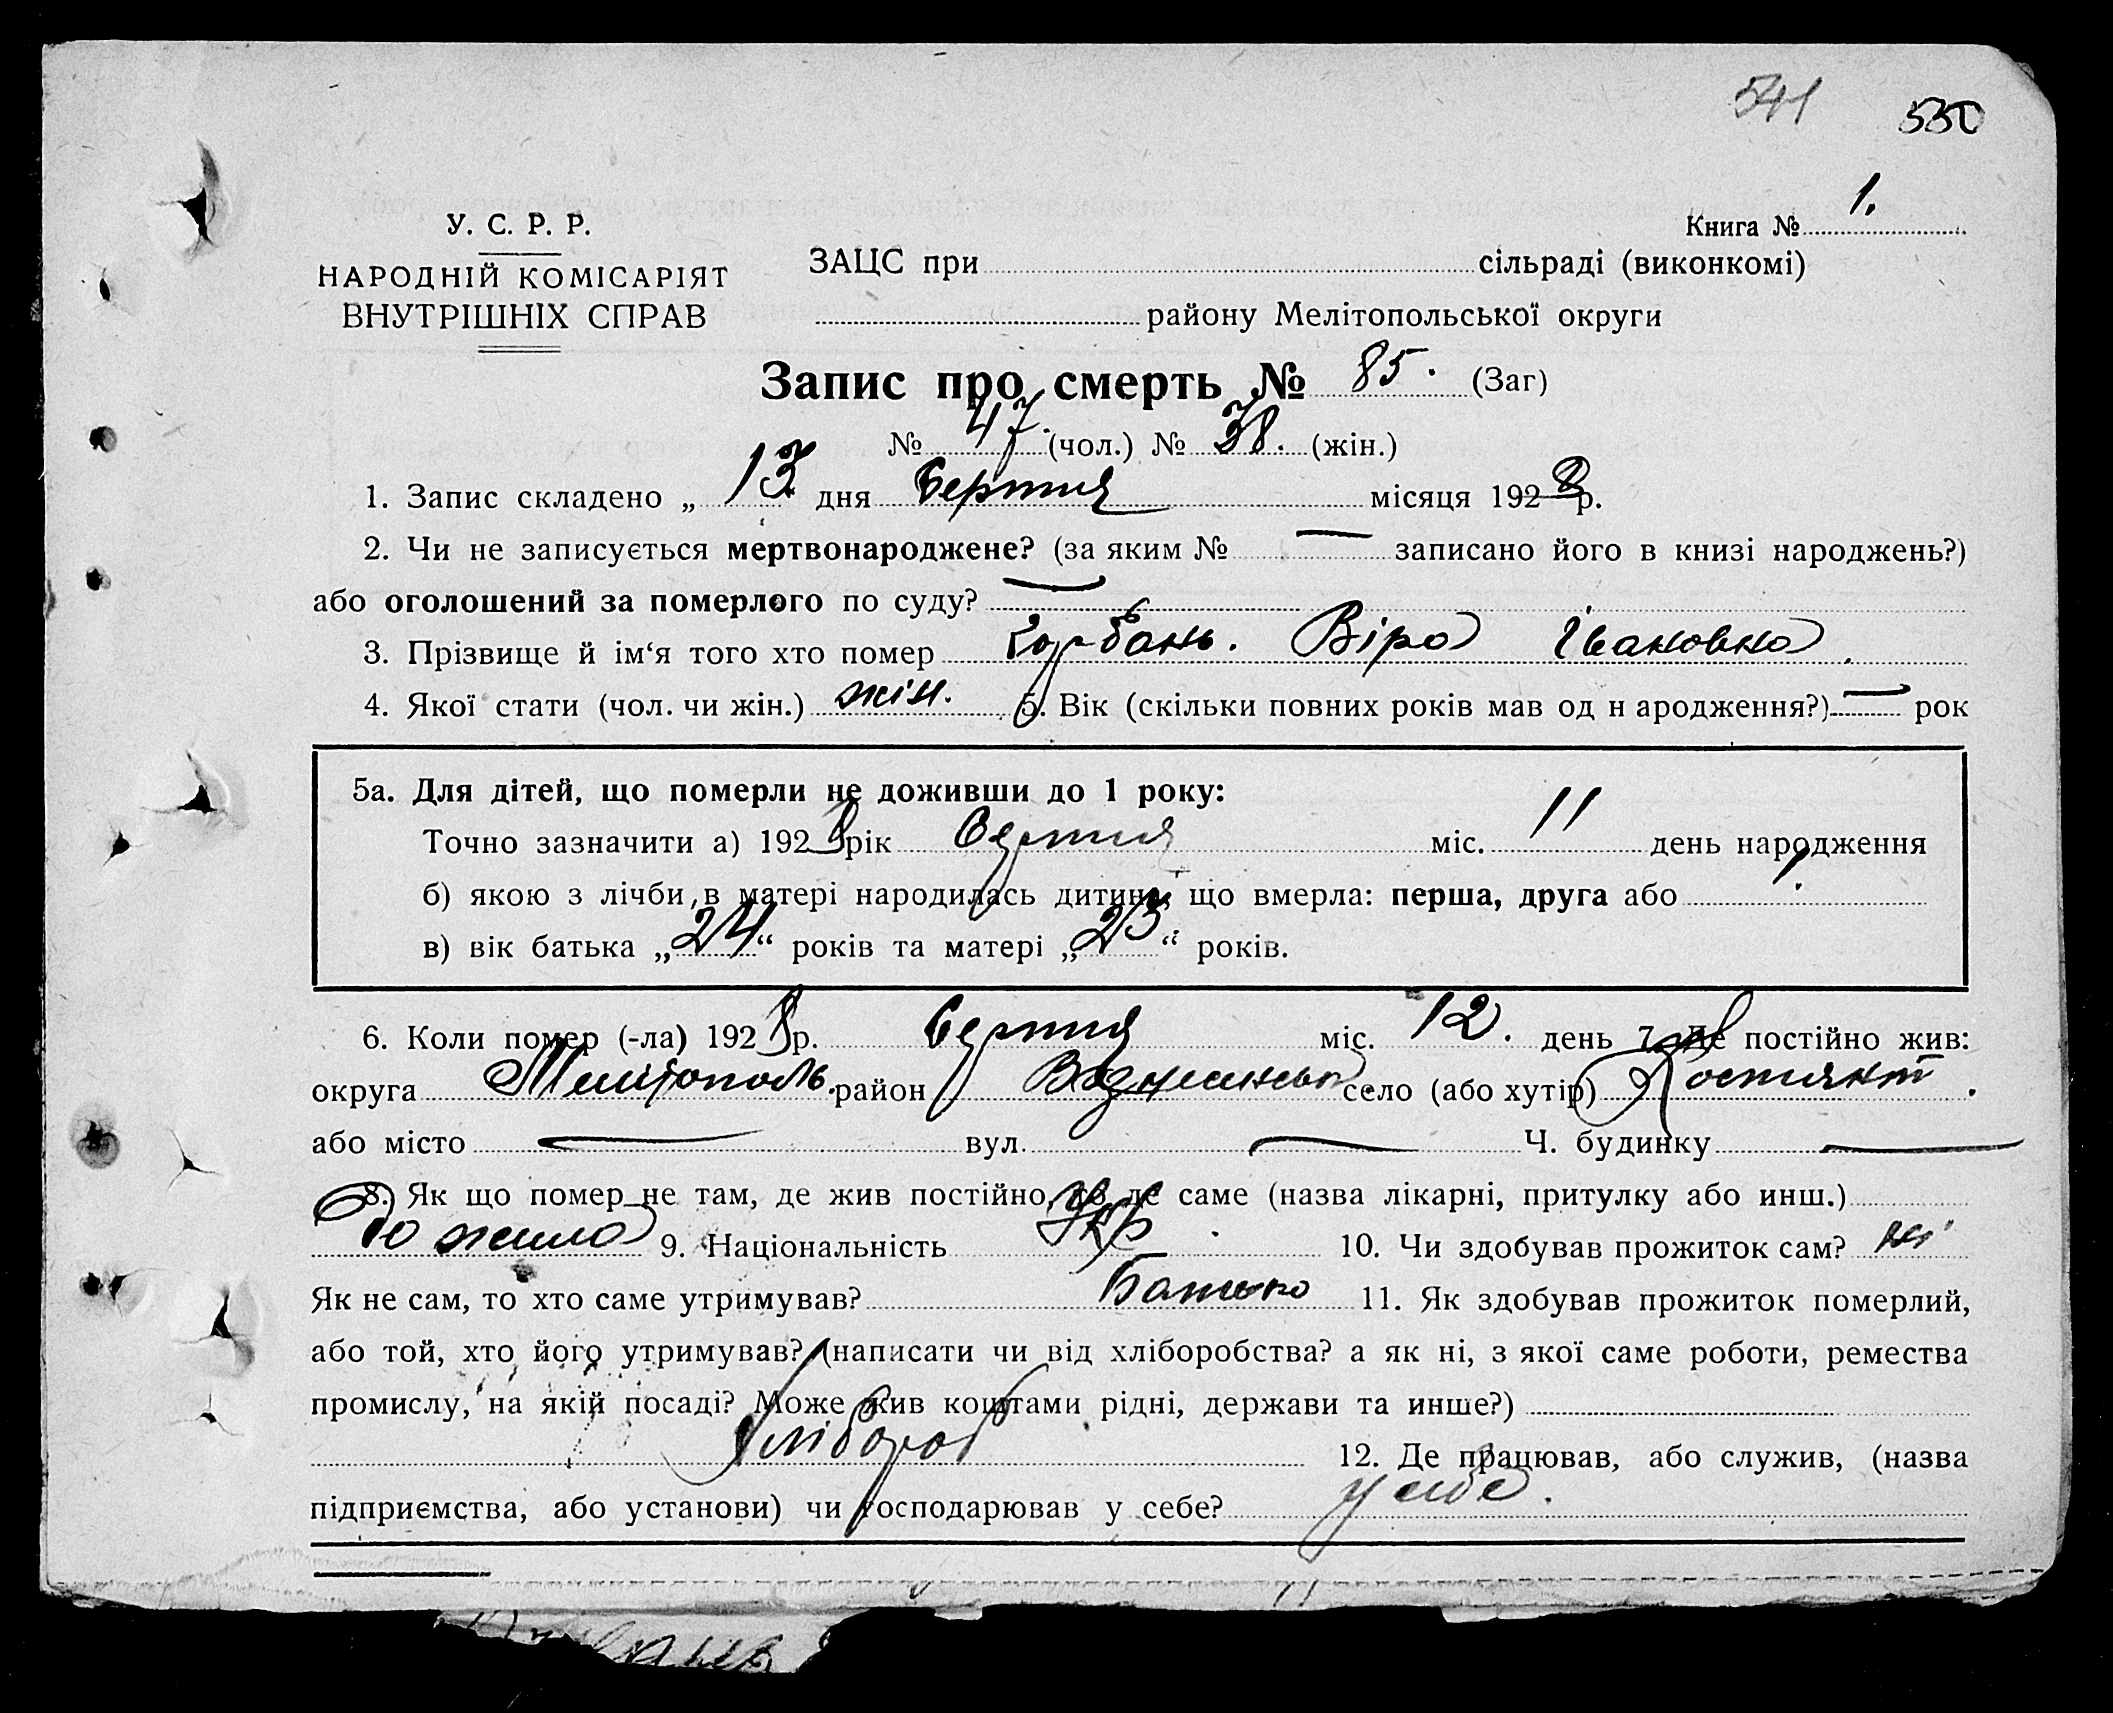 541 550
У. С. Р. Р.
Книга № 1.
НАРОДНІЙ КОМІСАРІЯТ
ВНУТРІШНІХ СПРАВ
ЗАЦС при сільраді (виконкомі)
району Мелітопольської округи
Запис про смерть № 85. (Заг)
№ 47. (чол.) № 38. (жін.)
1. Запис складено „ 13 дня Серпня місяця 1928 р.
2. Чи не записується мертвонароджене? (за яким № — записано його в книзі народжень?)
або оголошений за померлого по суду? —
3. Прізвище й ім‘я того хто помер Горбань. Віра Івановна.
4. Якої стати (чол. чи жін.) жін. 5. Вік (скільки повних років мав од н ародження?) — рок
5а. Для дітей, що померли не доживши до 1 року:
Точно зазначити а) 1928 рік Серпня міс. 11 день народження
б) якою з лічби, в матері народилась дитина, що вмерла: перша, друга або 1.
в) вік батька „24“ років та матері „23“ років.
6. Коли помер (-ла) 1928 р. Серпня міс. 12. день 7. Де постійно жив:
округа Мелітополь. район село (або хутір)
або місто — вул. — Ч. будинку —
8. Як що помер не там, де жив постійно, то де саме (назва лікарні, притулку або инш.)
де жила 9. Національність Укр. 10. Чи здобував прожиток сам? ні
Як не сам, то хто саме утримував? Батько 11. Як здобував прожиток померлий,
або той, хто його утримував? (написати чи від хліборобства? а як ні, з якої саме роботи, ремества
промислу, на якій посаді? Може жив коштами рідні, держави та инше?)
Хлібороб 12. Де працював, або служив, (назва
підприємства, або установи) чи господарював у себе? у себе.